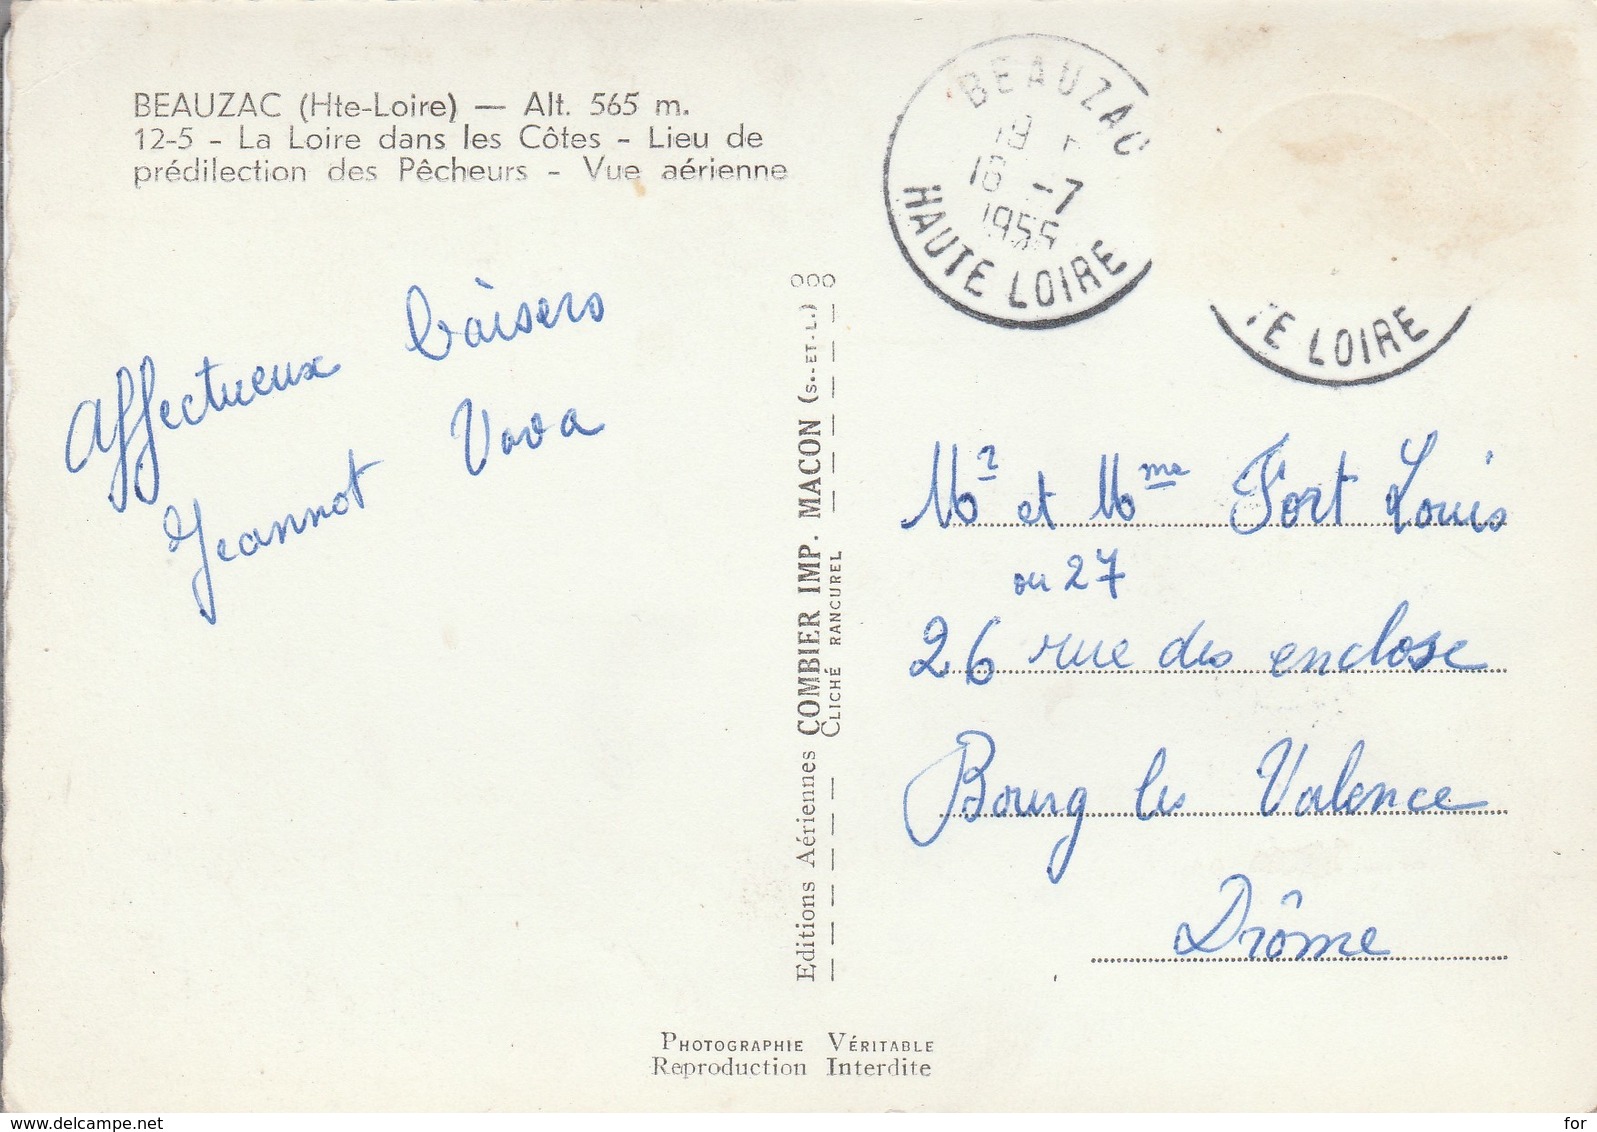 BEAUZAC (Hte-Loire) — Alt. 565 m.
12-5 - La Loire dans les Côtes - Lieu de
prédilection des Pêcheurs - Vue aérienne
Affectueux baisers
Jeannot Vova
Editions Aériennes COMBIER IMP. MACON (S.-ET-L.)
CLICHÉ RANCUREL
BEAUZAC
-7
HAUTE LOIRE
TE LOIRE
Mr et Mme Fort Louis
ou 27
26 rue des enclose
Bourg les Valence
Drôme
PHOTOGRAPHIE VÉRITABLE
Reproduction Interdite
www.delcampe.net
for